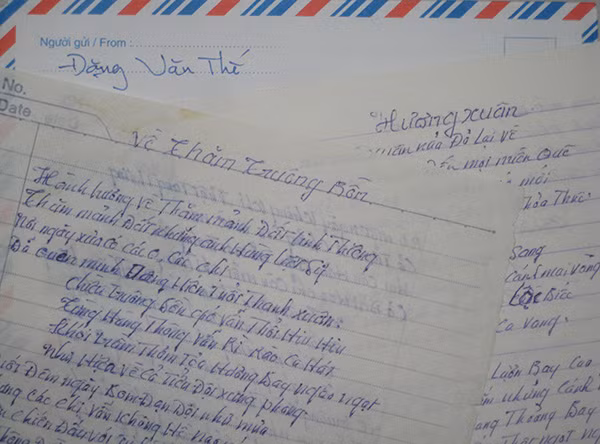 Người gửi / From :
Đặng Văn Thế
No.
Date
Về Thăm Trường Bồn
Hành hương về Thăm mảnh Đất linh Thiêng
Thăm mảnh Đất những anh Hùng liệt Sỹ
Nơi ngày xưa có các o, các chị
Đã quên mình Dâng Hiến Tuổi Thanh Xuân.
Chiều Trường Bồn gió vẫn Thổi Hiu Hiu
Từng Hàng Thông vẫn Rì Rào Ca Hát
Khói Trầm Thơm Tỏa Hương Bay ngào ngạt
Như Hiện Về Cả Tiểu Đội xung phong
Đêm ngày Bom Đạn Dội như mưa
các chị vẫn không Hề
Chiến Đấu với
Hương xuân
Đỏ Lại Về
Đến mọi miền Quê
mới
Sang
Cánh mai vàng
Lộc Biếc
Ca vang.
Lượn Bay Cao
những Cánh
Thoảng Bay